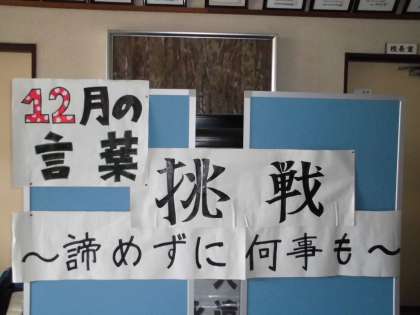 12月の
言葉
挑戦
～諦めずに何事も～
校長室